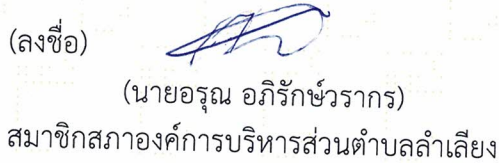 (ลงชื่อ)
(นายอรุณ อภิรักษ์วรากร)
สมาชิกสภาองค์การบริหารส่วนตำบลลำเลียง